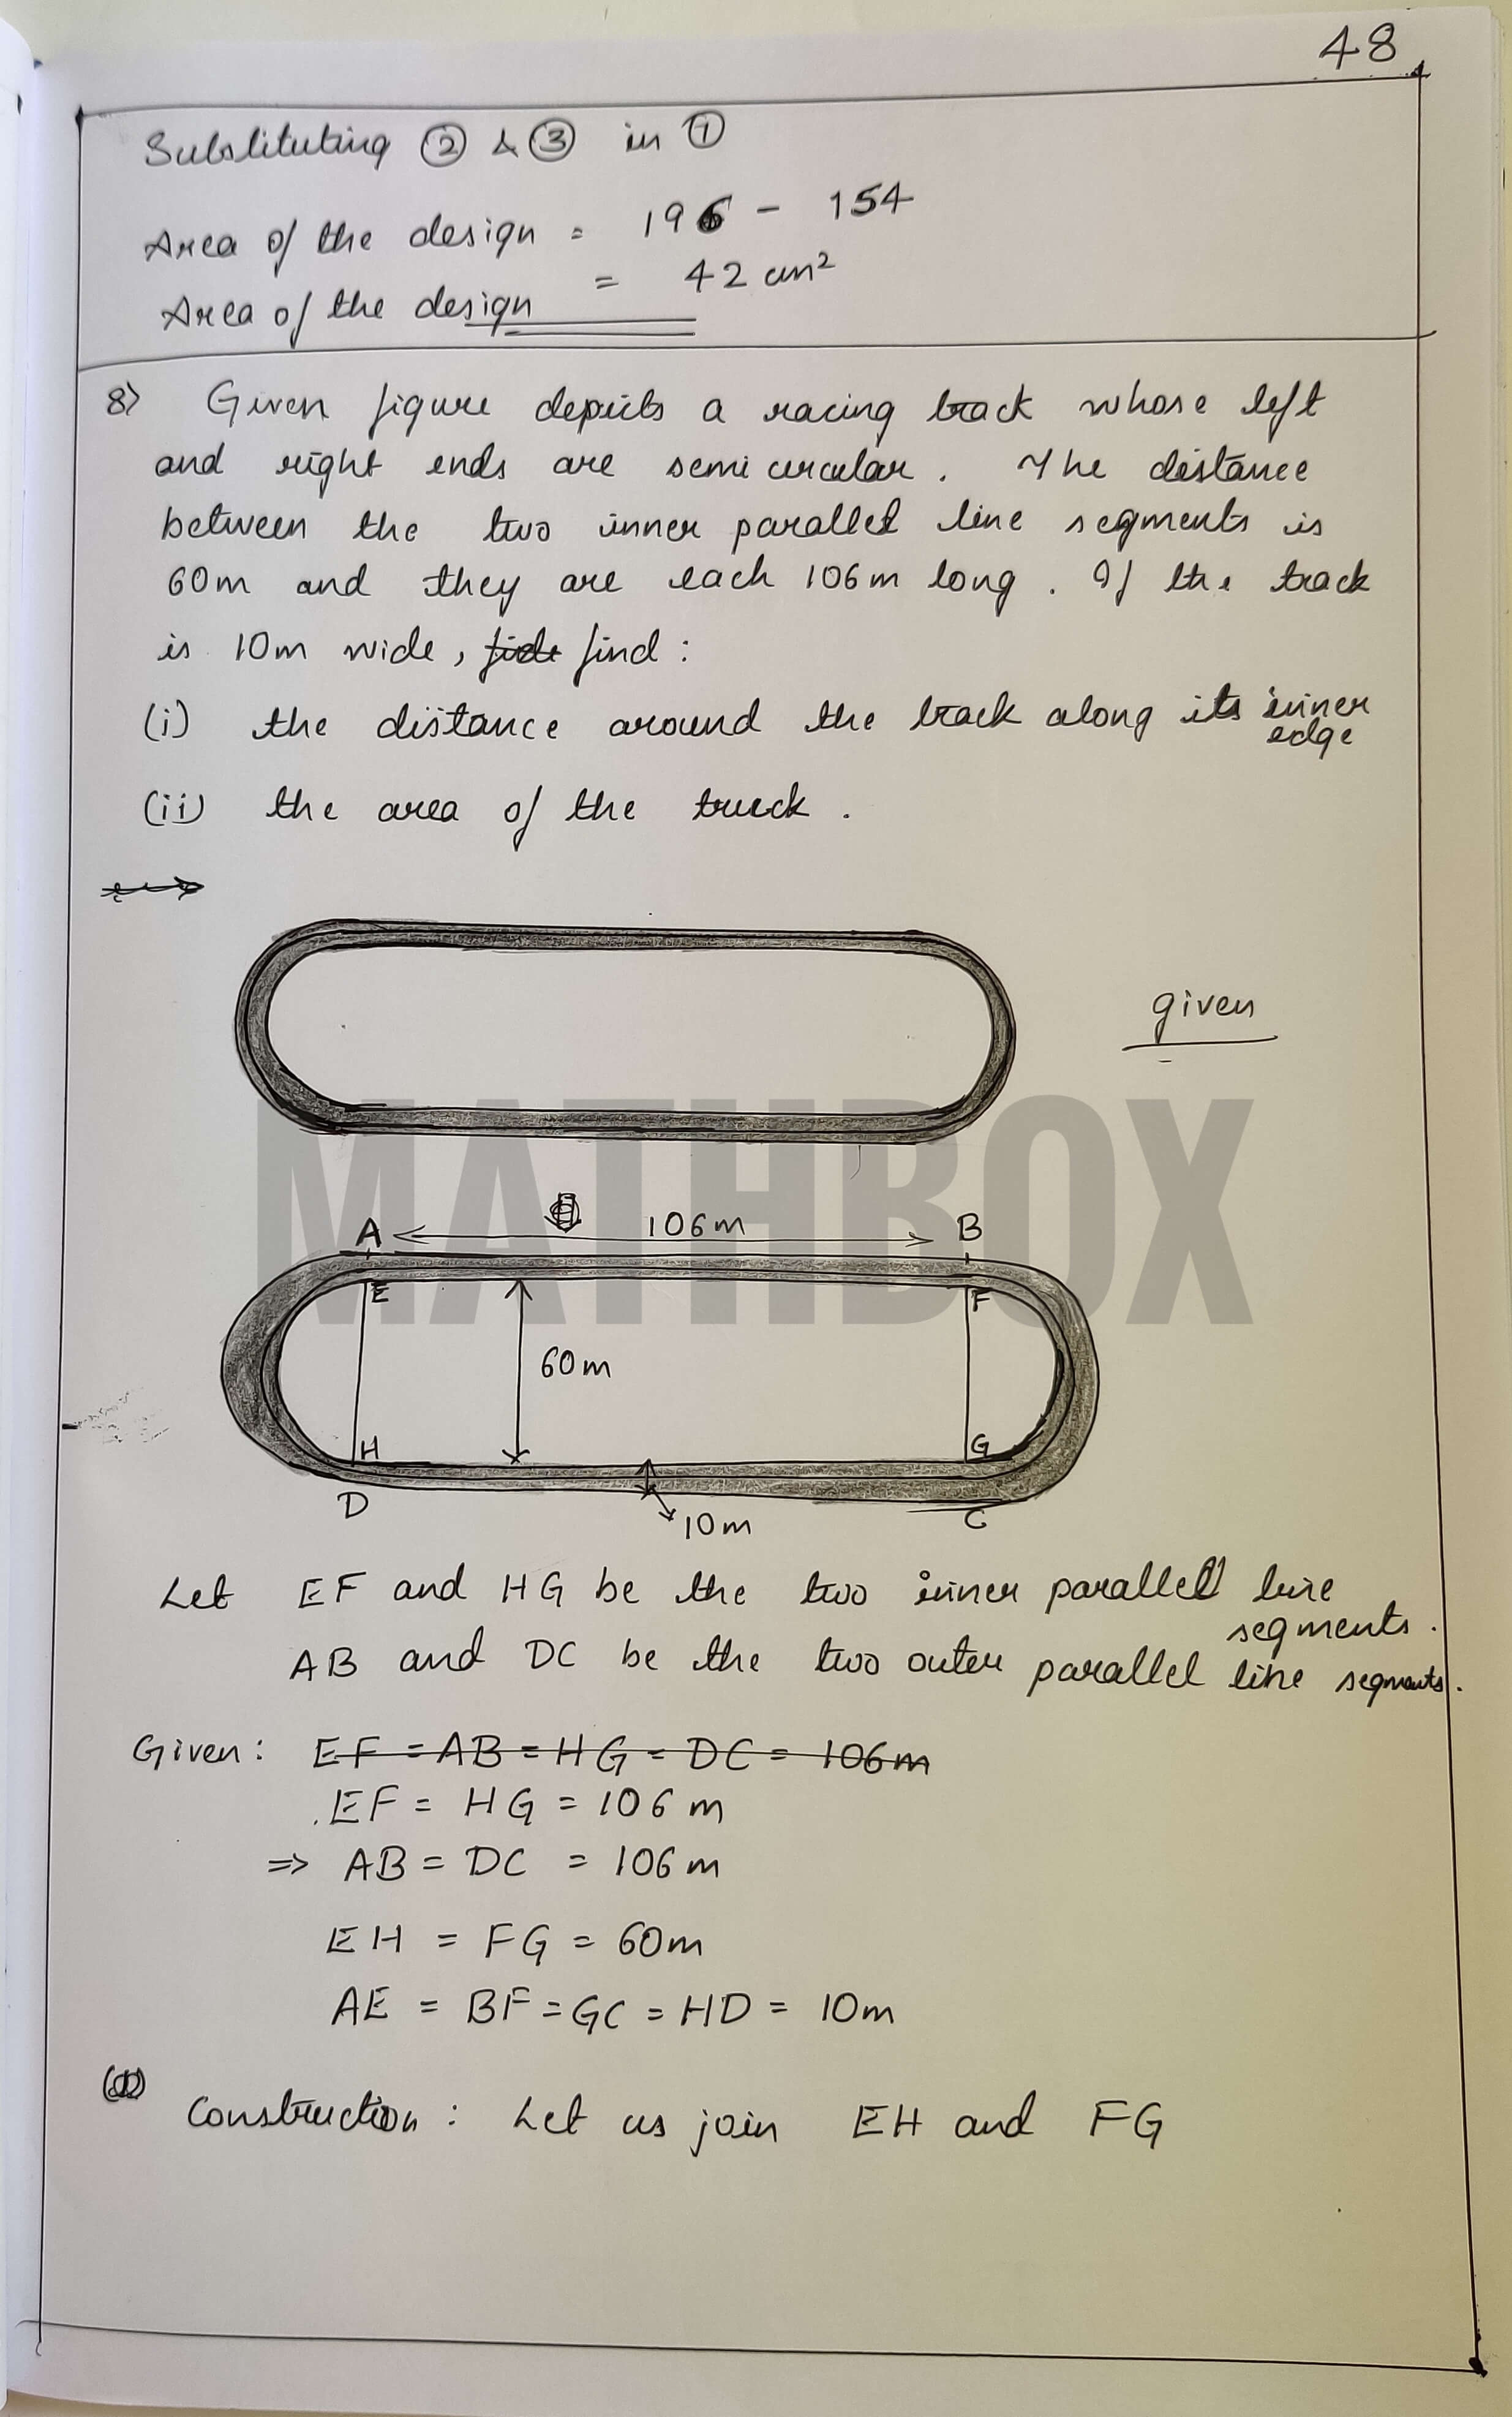 48
Substituting ② & ③ in ①
Area of the design = 196 - 154
= 42 cm²
Area of the design
8) Given figure depicts a racing track whose left
and right ends are semicircular. The distance
between the two inner parallel line segments is
60m and they are each 106m long. If the track
is 10m wide, find :
(i) the distance around the track along its inner
edge
(ii) the area of the track.
given
A 106m B
E F
60m
H G
D C
10m
MATHBOX
Let EF and HG be the two inner parallel line
segments.
AB and DC be the two outer parallel line segments.
Given: EF = AB = HG = DC = 106m
EF = HG = 106 m
⇒ AB = DC = 106 m
EH = FG = 60m
AE = BF = GC = HD = 10m
Construction : Let us join EH and FG